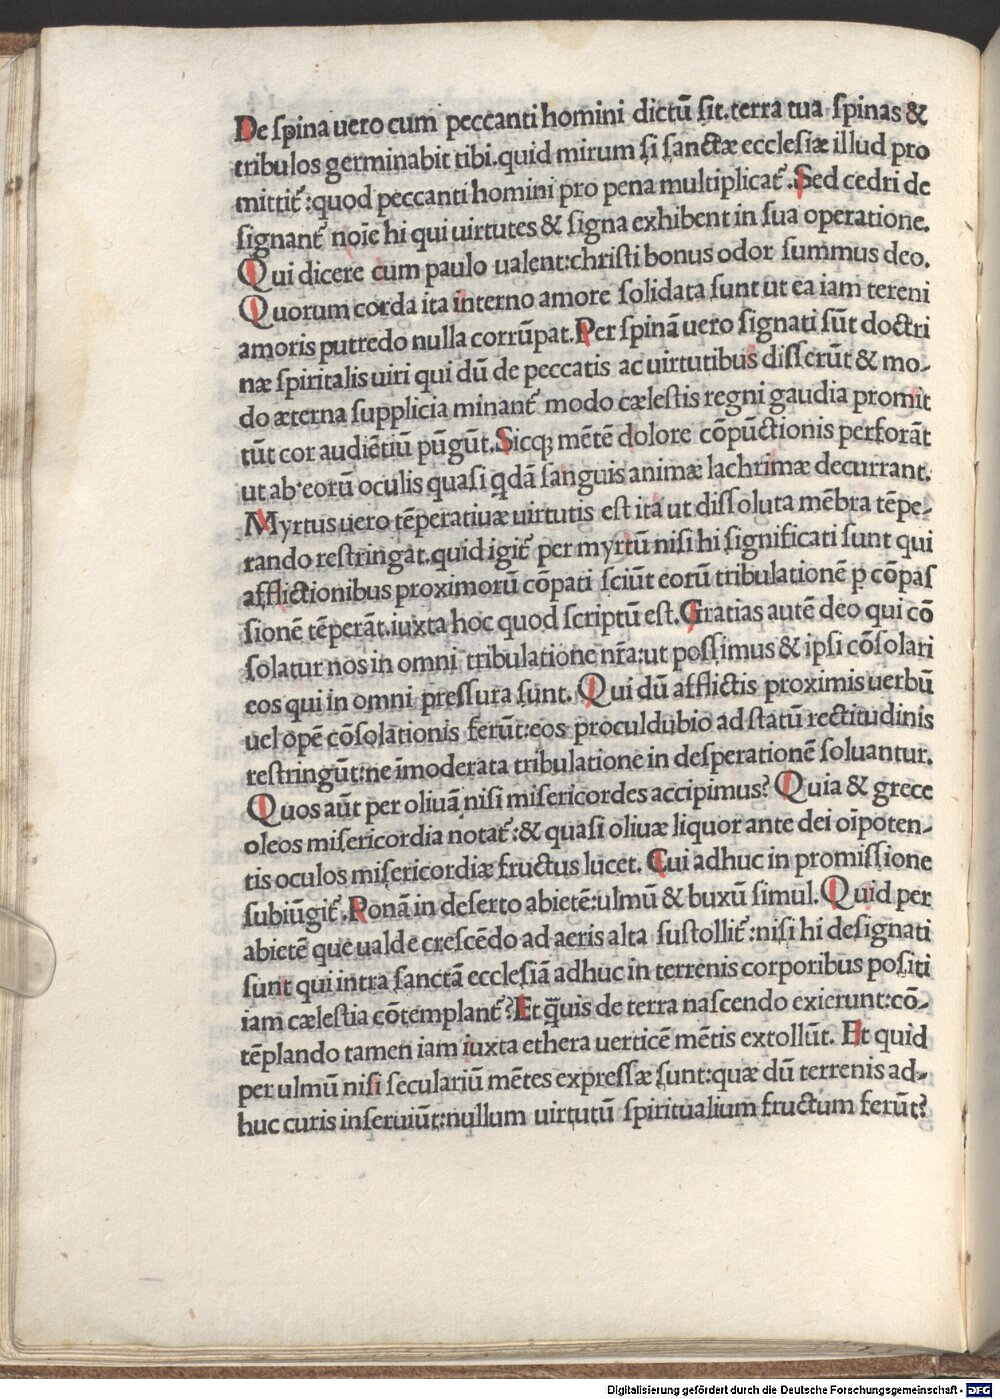 De ſpina uero cum peccanti homini dictũ ſit.terra tua ſpinas &
tribulos germinabit tibi.quid mirum ſi ſanctæ eccleſiæ illud pro
mittit᷑:quod peccanti homini pro pena multiplicat᷑.Sed cedri de
ſignant᷑ noīe hi qui uirtutes & ſigna exhibent in ſua operatione.
Qui dicere cum paulo ualent:chriſti bonus odor ſummus deo.
Quorum corda ita interno amore ſolidata ſunt ut ea iam tereni
amoris putredo nulla corrũpat.Per ſpinã uero ſignati ſũt doctri
næ ſpiritalis uiri qui dũ de peccatis ac uirtutibus diſſerũt & mo-
do æterna ſupplicia minant᷑ modo cæleſtis regni gaudia promit
tũt cor audiẽtiũ pũgũt.Sicq; mẽtẽ dolore cõpũctionis perforãt
ut ab eorũ oculis quaſi q̇dã ſanguis animæ lachrimæ decurrant.
Myrtus uero tẽperatiuæ uirtutis eſt ita ut diſſoluta mẽbra tẽpe-
rando reſtringat.quid igit᷑ per myrtũ niſi hi ſignificati ſunt qui
afflictionibus proximorũ cõpati ſciũt eorũ tribulationẽ p cõpaſ
ſionẽ tẽperãt.iuxta hoc quod ſcriptũ eſt.Gratias autẽ deo qui cõ
ſolatur nos in omni tribulatione nr̃a:ut poſſimus & ipſi cõſolari
eos qui in omni preſſura ſunt. Qui dũ afflictis proximis uerbũ
uel opẽ cõſolationis ferũt:eos proculdubio ad ſtatũ rectitudinis
reſtringũt:ne ĩmoderata tribulatione in deſperationẽ ſoluantur.
Quos aũt per oliuã niſi miſericordes accipimus? Quia & grece
oleos miſericordia notat᷑:& quaſi oliuæ liquor ante dei oĩpoten-
tis oculos miſericordiæ fructus lucet. Cui adhuc in promiſſione
ſubiũgit᷑.Ponã in deſerto abietẽ:ulmũ & buxũ ſimul. Quid per
abietẽ que ualde creſcẽdo ad aeris alta ſuſtollit᷑:niſi hi deſignati
ſunt qui intra ſanctã eccleſiã adhuc in terrenis corporibus poſiti
iam cæleſtia cõtemplant᷑?Et q̃uis de terra naſcendo exierunt:cõ-
tẽplando tamen iam iuxta ethera uerticẽ mẽtis extollũt. Et quid
per ulmũ niſi ſeculariũ mẽtes expreſſæ ſunt:quæ dũ terrenis ad-
huc curis inſeruiũt:nullum uirtutũ ſpiritualium fructum ferũt?
Digitalisierung gefördert durch die Deutsche Forschungsgemeinschaft - DFG